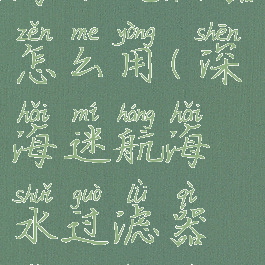 zěn me yòng shēn
怎么用(深
hǎi mí háng hǎi
海迷航海
shuǐ guò lǜ qì
水过滤器